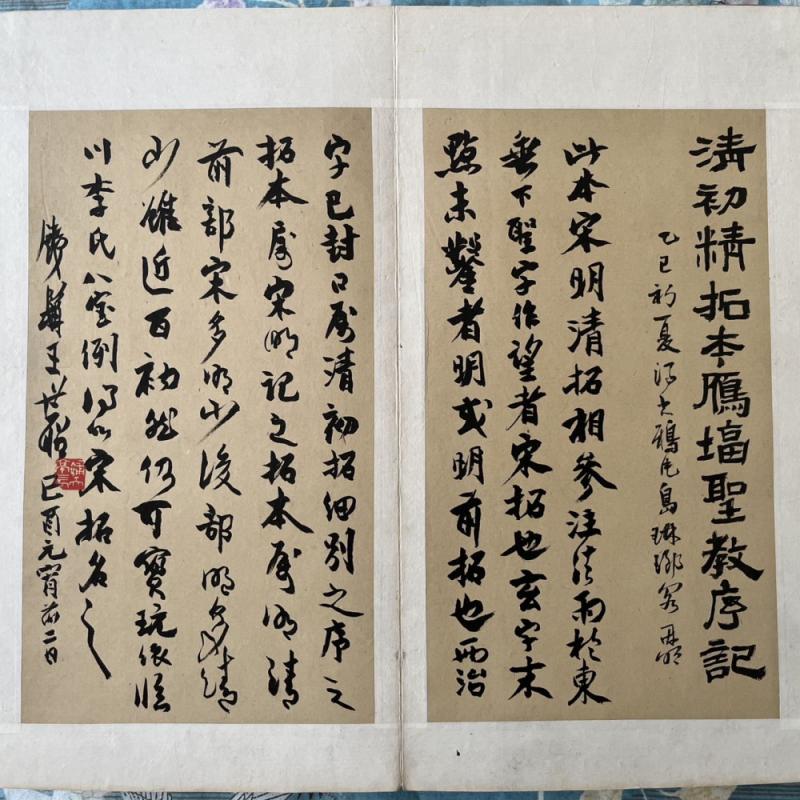 清初精拓本鴈塔聖教序記
乙巳初夏
此本宋明清拓相參注法雨於東
垂下聖字作望者宋拓也玄字末
點未鑿者明或明前拓也而治
字已封口屬清初拓細別之序之
拓本屬宋明記之拓本屬明清
前部宋多明少後部明多清
少雖近百衲然仍可寶玩依臨
川李氏八寶例得以宋拓名之
王世 己酉元宵前二日